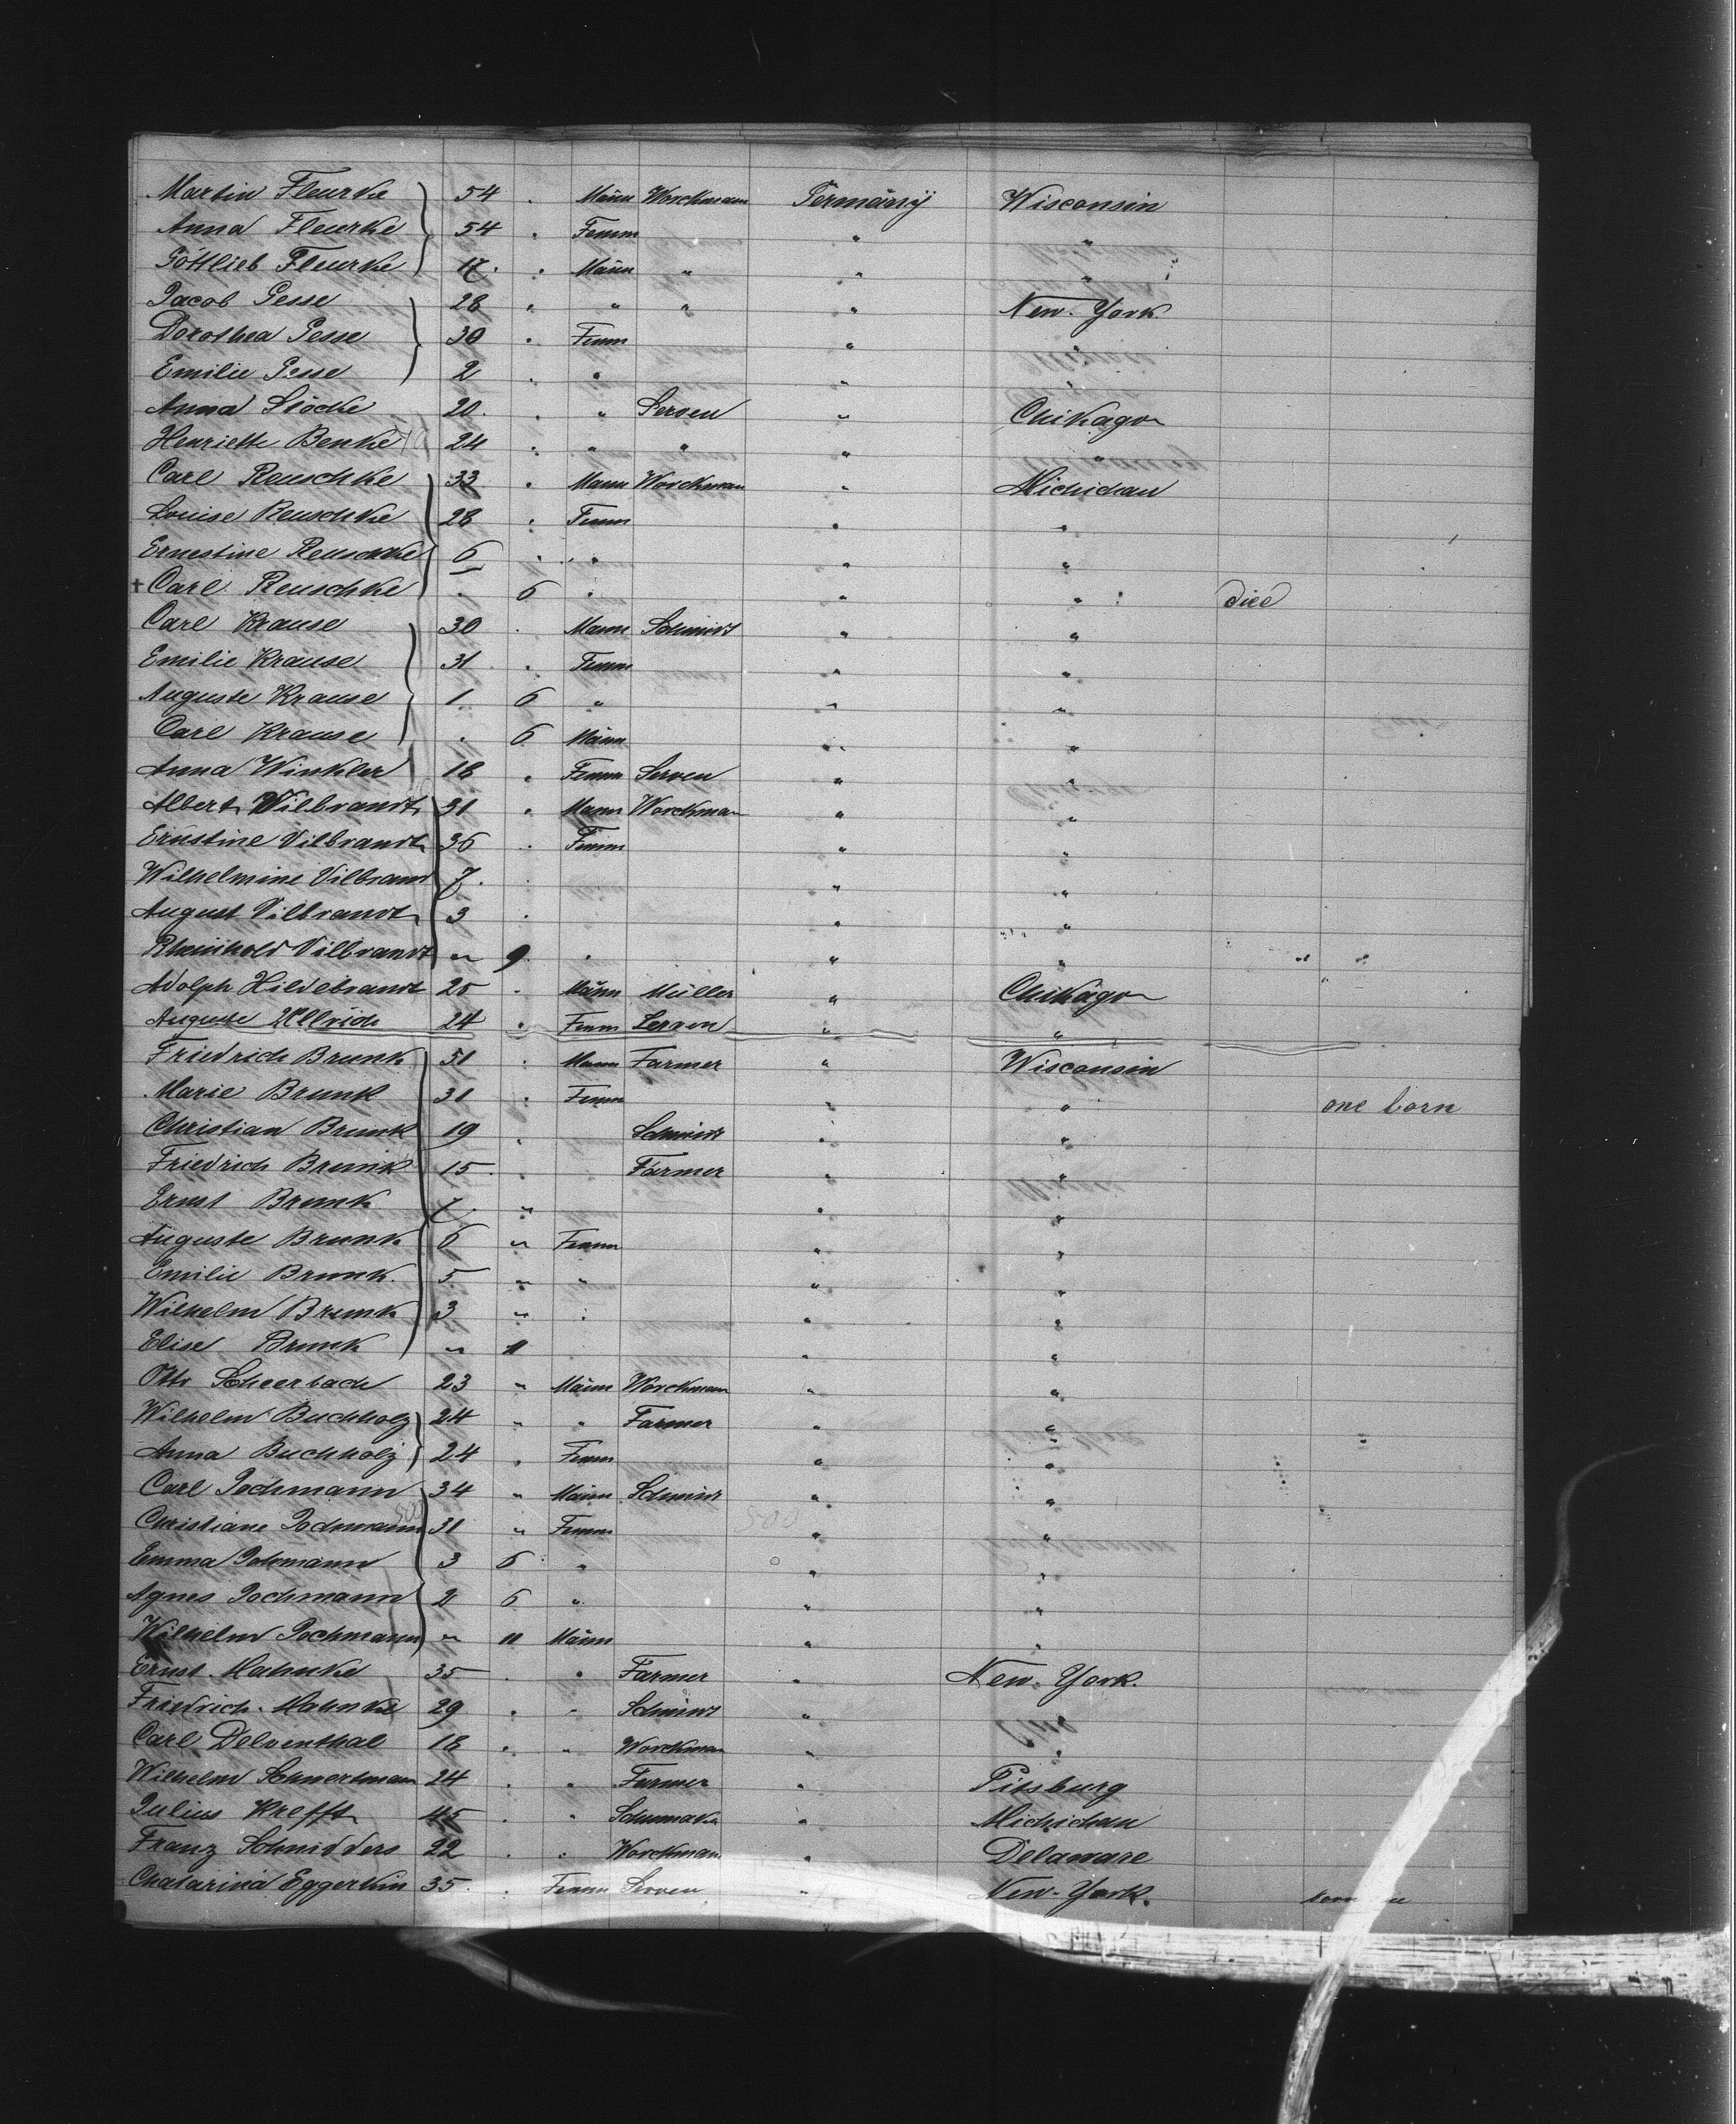 Martin Fleurke 54 . Mann Worckmann Germany Wisconsin
Anna Fleurke 54 . Femm " "
Göttlieb Fleurke 17 . Mann " " "
Jacob Gesse 28 . " " " New-York
Dorothea Gesse 30 . Femm " "
Emilie Gesse 2 . " " "
Anna Stöcke 20 . " Serven " Chikago
Henriette Benke 24 . " " " "
Carl Reuschke 33 . Mann Worckman " Michichan
Louise Reuschke 28 . Femm " "
Ernestine Reuschke 6 . " " "
+ Carl Reuschke . 6 " " " died
Carl Krause 30 . Mann Schmidt " "
Emilie Krause 31 . Femm " "
Auguste Krause 1 6 " " "
Carl Krause . 6 Mann " "
Anna Winkler 18 . Femm Serven " "
Albert Wilbrandt 31 . Mann Worckman " "
Ernstine Vilbrandt 36 . Femm " "
Wilhelmine Vilbrand 7 . " "
August Vilbrandt 3 . " "
Rheinhold Vilbrandt " 9 " "
Adolph Hildebrandt 25 . Mann Müller " Chikago
Auguste Ullrich 24 . Femm Serven " "
Friedrich Brunk 51 . Mann Farmer " Wisconsin
Marie Brunk 31 . Femm " " one born
Christian Brunk 19 . Schmidt " "
Friedrich Brunk 15 . Farmer " "
Ernst Brunk 7 " " "
Auguste Brunk 6 " Femm " "
Emilie Brunk 5 " " " "
Wilhelm Brunk 3 " " "
Elise Brunk " 11 " "
Otto Scheerbach 23 " Mann Worckman " "
Wilhelm Buchholz 24 " " Farmer " "
Anna Buchholz 24 . Femm " "
Carl Pochmann 34 " Mann Schmidt " "
Christiane Pochmann 31 " Femm " "
Emma Pochmann 3 6 " " "
Agnes Pochmann 2 6 " " "
Wilhelm Pochmann " 11 Mann " "
Ernst Mahnke 35 . " Farmer " New-York.
Friedrich Mahnke 29 . " Schmidt "
Carl Delventhal 18 . " Worckman " "
Wilhelm 24 . " Farmer " Pitsburg
Julius Krefft 45 . " " Michichan
Franz Schnidders 22 . " Worckman " Delaware
Chatarina Eggerkin 35 . Femm Serven " New-York.